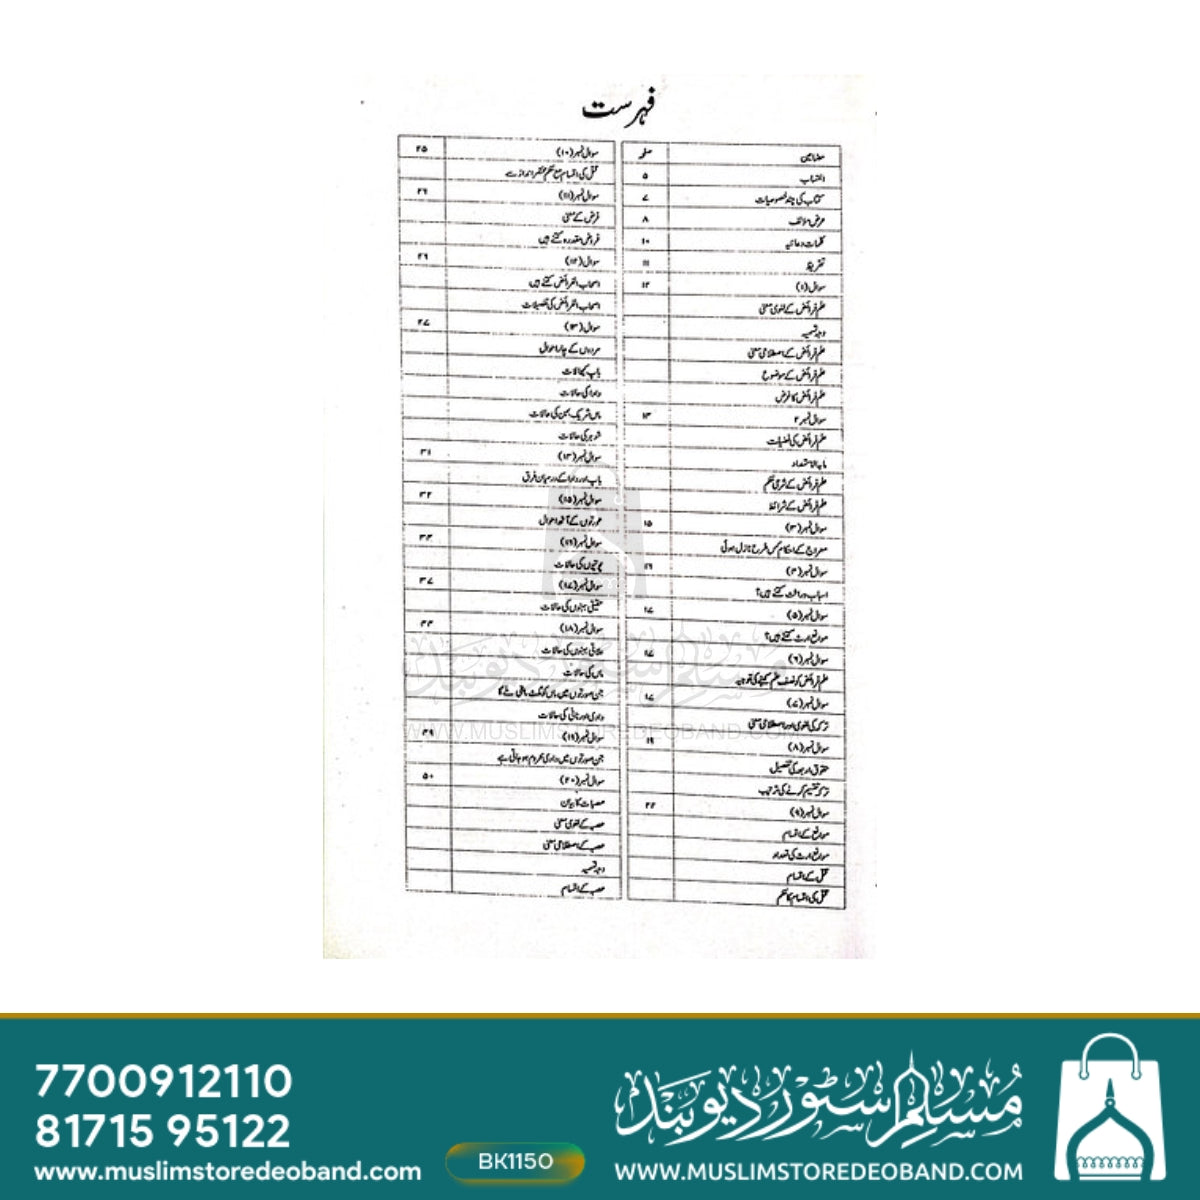 فہرست
مضامین صفحہ
انتساب ۵
کتاب کی چند خصوصیات ۷
عرض مؤلف ۸
کلمات دعائیہ ۱۰
تقریظ ۱۱
سوال (۱) ۱۲
علم فرائض کے لغوی معنی
وجہ تسمیہ
علم فرائض کے اصطلاحی معنی
علم فرائض کے موضوع
علم فرائض کا غرض
سوال نمبر ۲ ۱۳
علم فرائض کی فضیلت
مابہ الاستمداد
علم فرائض کے شرعی حکم
علم فرائض کے شرائط
سوال نمبر (۳) ۱۵
معراج کے احکام کس طرح نازل ہوئی
سوال نمبر (۴) ۱۶
اسباب وراثت کتنے ہیں؟
سوال نمبر (۵) ۱۷
موانع ارث کتنے ہیں؟
سوال نمبر (۶) ۱۷
علم فرائض کو نصف علم کہنے کی توجیہ
سوال نمبر (۷) ۱۷
ترکہ کی لغوی اور اصطلاحی معنی
سوال نمبر (۸) ۱۹
حقوق اربعہ کی تفصیل
ترکہ تقسیم کرنے کی ترتیب
سوال نمبر (۹) ۲۲
موانع کے اقسام
موانع ارث کی تعداد
قتل کے اقسام
قتل کی اقسام کا حکم
سوال نمبر (۱۰) ۲۵
قتل کی اقسام مع حکم مختصر انداز سے
سوال نمبر (۱۱) ۲۶
فرض کے معنی
فروض مقدرہ کتنے ہیں
سوال (۱۲) ۲۶
اصحاب الفرائض کتنے ہیں
اصحاب الفرائض کی تفصیلات
سوال (۱۳) ۲۷
مردوں کے چار احوال
باپ کی حالات
دادا کی حالات
ماں شریک بہن کی حالات
شوہر کی حالات
سوال نمبر (۱۴) ۳۱
باپ اور دادا کے درمیان فرق
سوال نمبر (۱۵) ۳۲
عورتوں کے آٹھ احوال
سوال نمبر (۱۶) ۳۳
پوتیوں کی حالات
سوال نمبر (۱۷) ۳۷
حقیقی بہنوں کی حالات
سوال نمبر (۱۸) ۴۴
علاتی بہنوں کی حالات
ماں کی حالات
جن صورتوں میں ماں کو ثلث باقی ملے گا
دادی اور نانی کی حالات
سوال نمبر (۱۹) ۴۹
جن صورتوں میں دادی محروم ہو جاتی ہے
سوال نمبر (۲۰) ۵۰
عصبات کا بیان
عصبہ کے لغوی معنی
عصبہ کے اصطلاحی معنی
وجہ تسمیہ
عصبہ کے اقسام
مسلم سٹور دیوبند
WWW.MUSLIMSTOREDEOBAND.COM
7700912110
81715 95122
www.muslimstoredeoband.com
BK1150
مسلم سٹور دیوبند
WWW.MUSLIMSTOREDEOBAND.COM